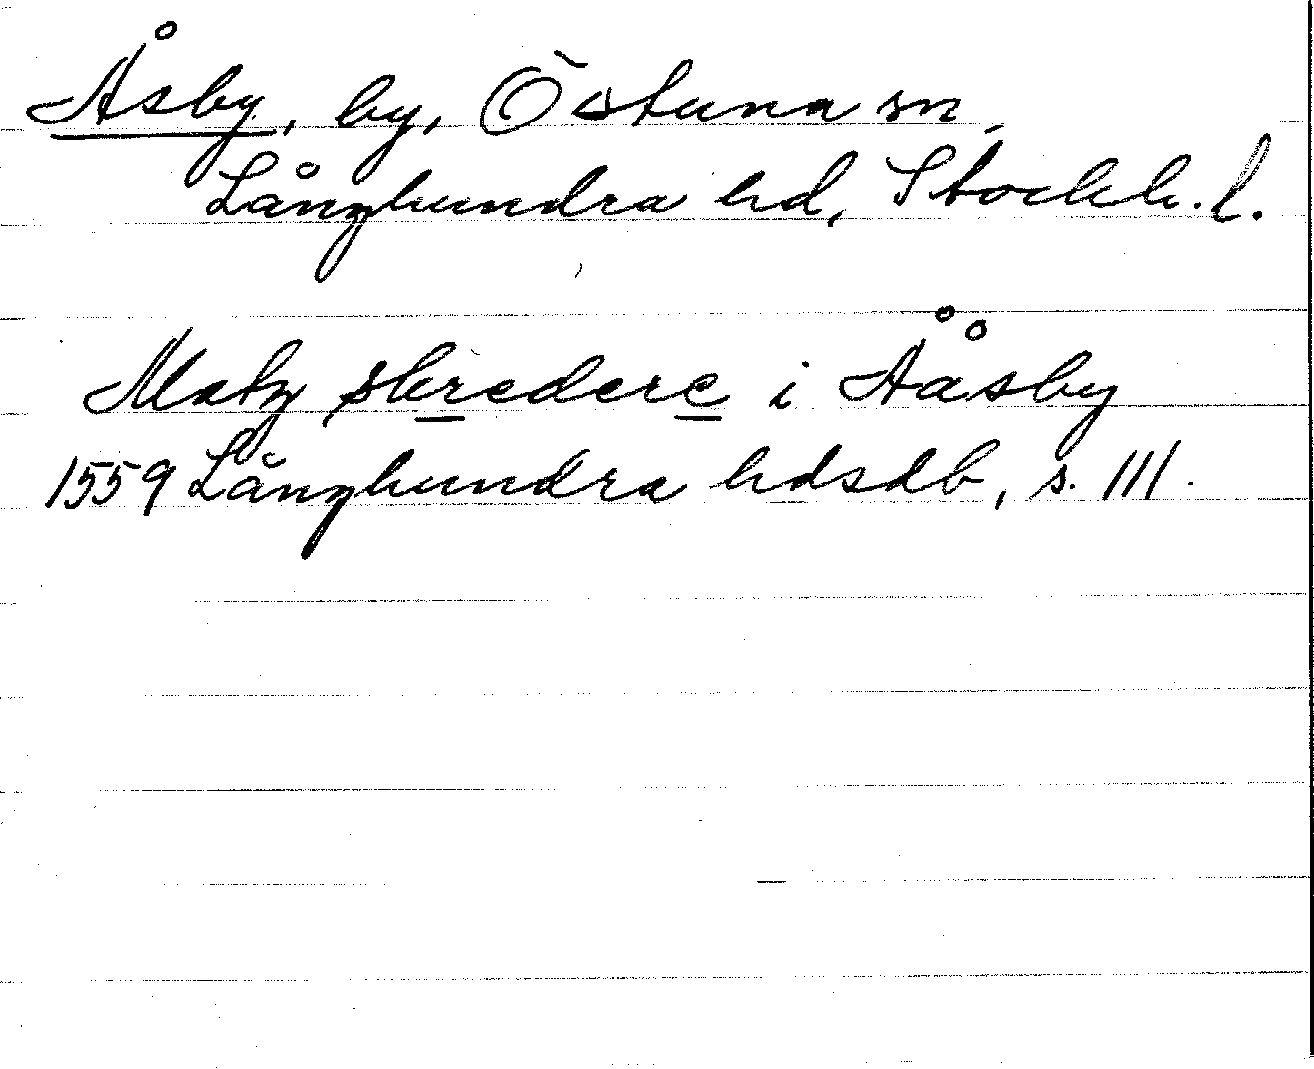 Åsby, by, Östuna sn,
Långhundra hd, Stockh. l.
Matz skredere i Ååsby
1559 Långhundra hdsdb, s. 111.